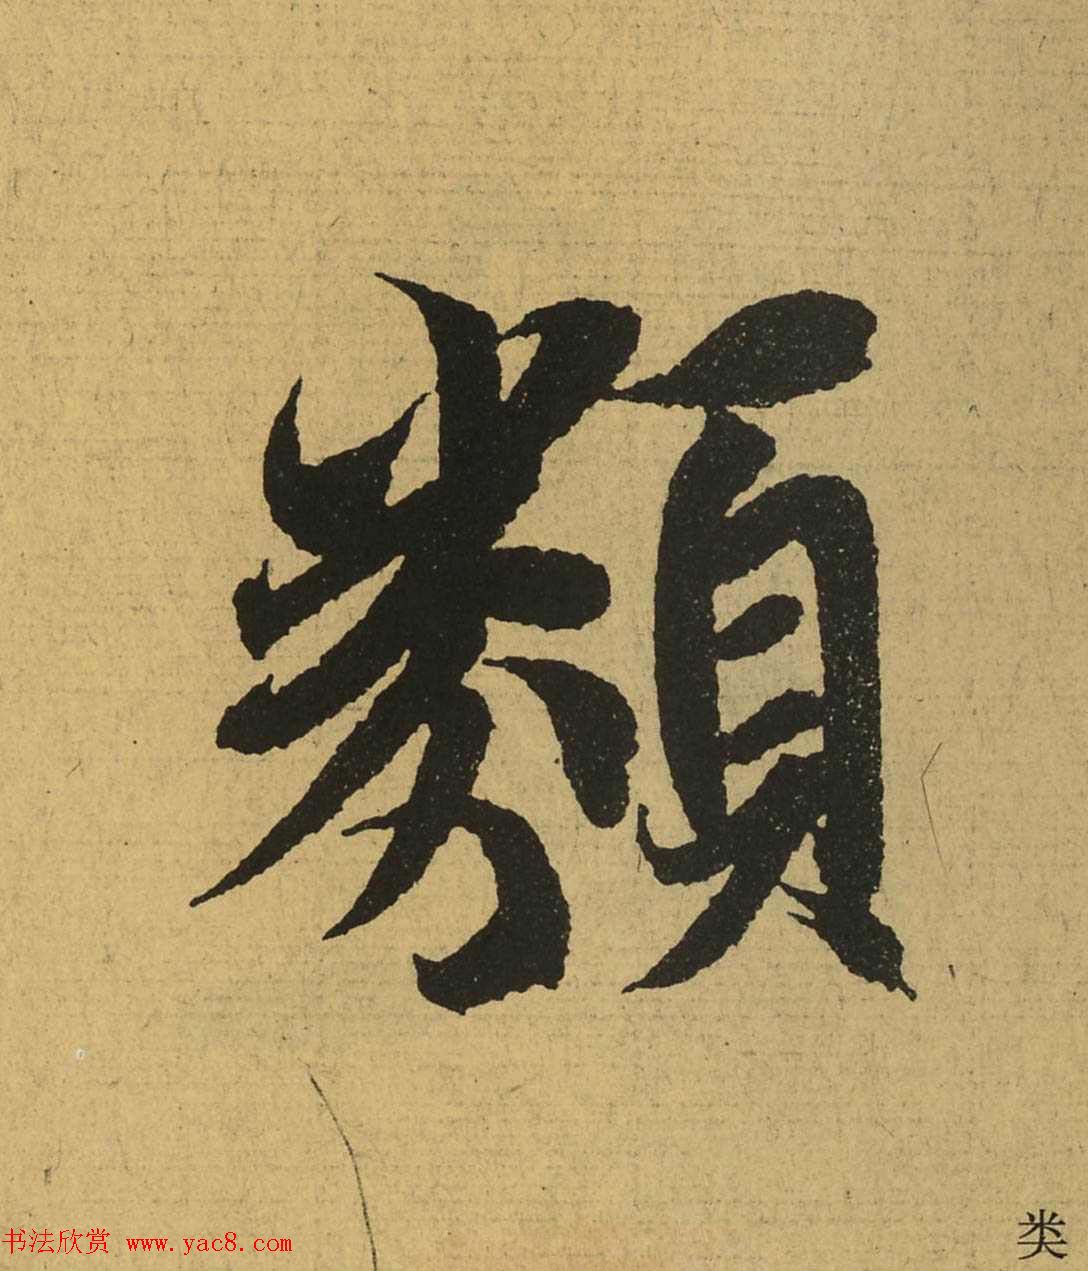 類
类
书法欣赏 www.yac8.com